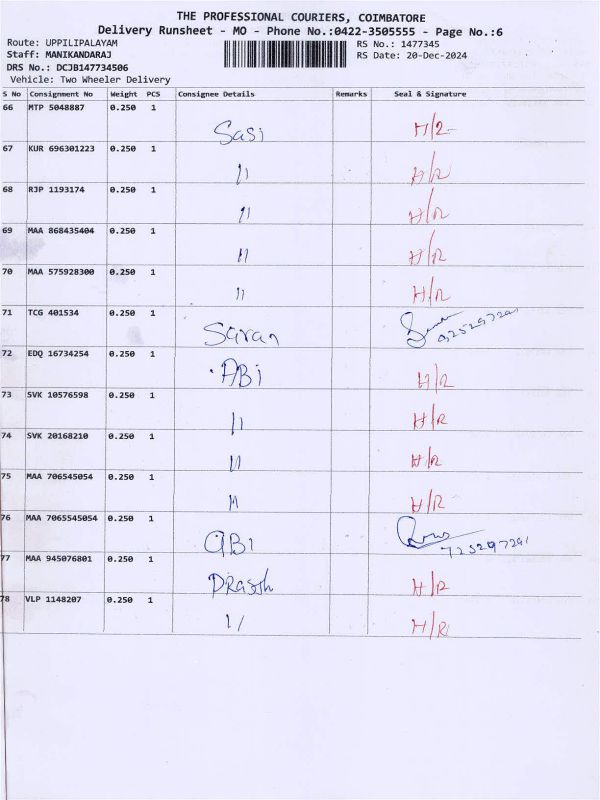 THE PROFESSIONAL COURIERS, COIMBATORE
Delivery Runsheet - MO - Phone No.:0422-3505555 - Page No.:6
Route: UPPILIPALAYAM RS No.: 1477345
Staff: MANIKANDARAJ RS Date: 20-Dec-2024
DRS No.: DCJB147734506
Vehicle: Two Wheeler Delivery
S No Consignment No Weight PCS Consignee Details Remarks Seal & Signature
66 MTP 5048887 0.250 1
Sasi H/R
67 KUR 696301223 0.250 1
11 H/R
68 RJP 1193174 0.250 1
11 H/R
69 MAA 868435404 0.250 1
11 H/R
70 MAA 575928300 0.250 1
11 H/R
71 TCG 401534 0.250 1
Saran
72 EDQ 16734254 0.250 1
ABi H/R
73 SVK 10576598 0.250 1
11 H/R
74 SVK 20168210 0.250 1
11 H/R
75 MAA 706545054 0.250 1
11 H/R
76 MAA 7065545054 0.250 1
ABi
77 MAA 945076801 0.250 1
H/R
78 VLP 1148207 0.250 1
11 H/R